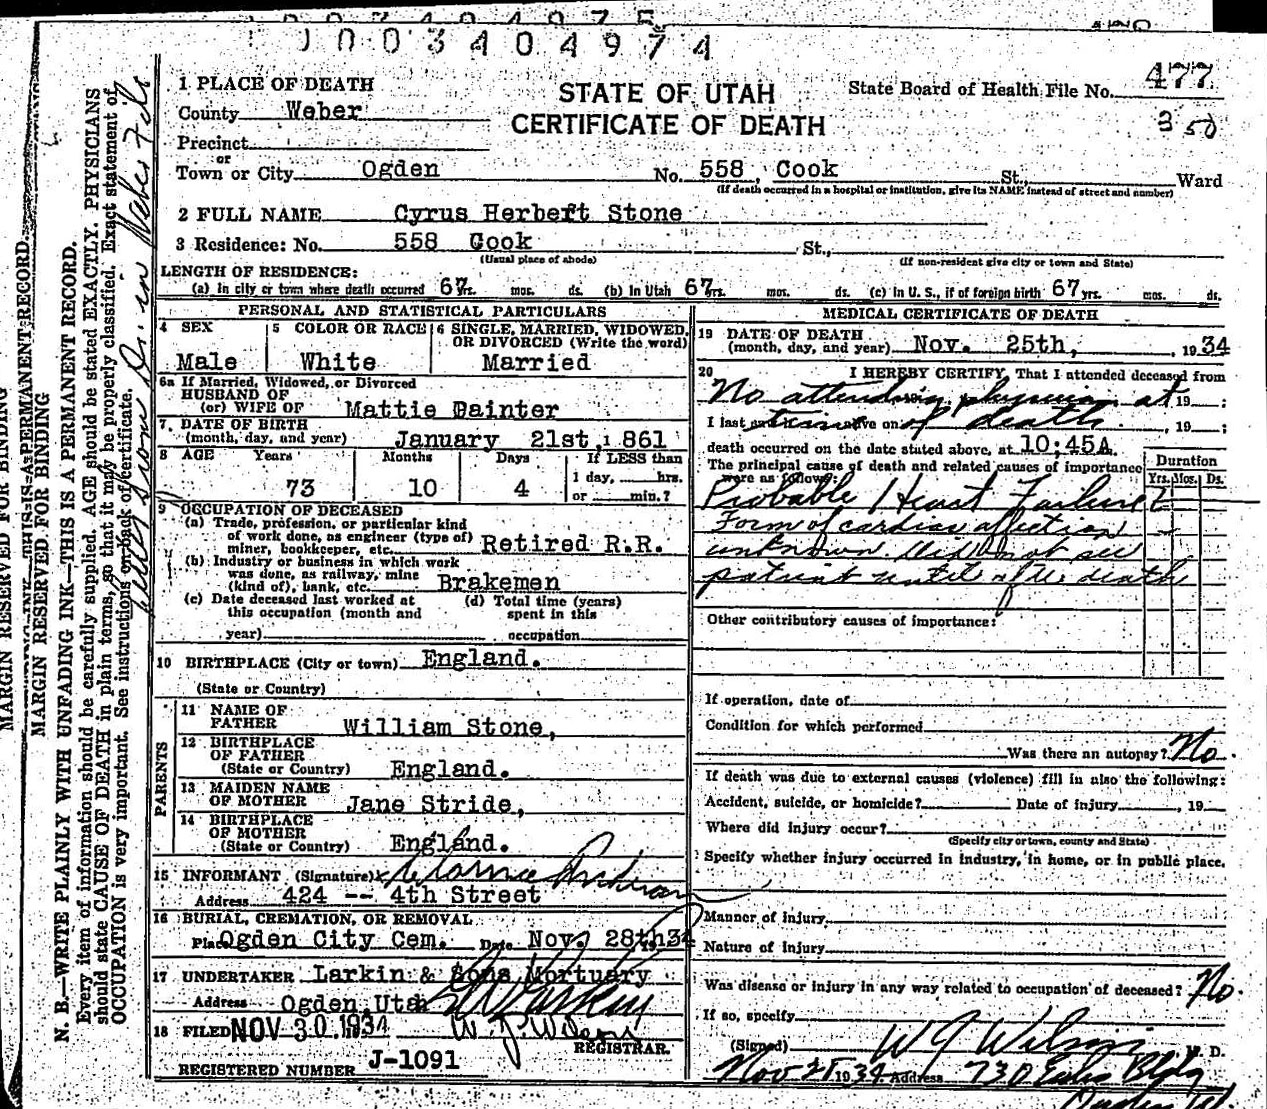 1003404974
STATE OF UTAH
CERTIFICATE OF DEATH
State Board of Health File No. 477
350
1 PLACE OF DEATH
County Weber
Precinct
or
Town or City Ogden No. 558, Cook St., Ward
(If death occurred in a hospital or institution, give its NAME instead of street and number)
2 FULL NAME Cyrus Herbert Stone
3 Residence: No. 558 Cook St.,
(Usual place of abode) (If non-resident give city or town and State)
LENGTH OF RESIDENCE:
(a) In city or town where death occurred 67 yrs. mos. ds. (b) In Utah 67 yrs. mos. ds. (c) In U. S., if of foreign birth 67 yrs. mos. ds.
PERSONAL AND STATISTICAL PARTICULARS
4 SEX
Male
5 COLOR OR RACE
White
6 SINGLE, MARRIED, WIDOWED, OR DIVORCED (Write the word)
Married
6a If Married, Widowed, or Divorced
HUSBAND OF
(or) WIFE OF Mattie Gainter
7. DATE OF BIRTH
(month, day, and year) January 21st, 1861
8 AGE Years Months Days If LESS than
1 day, hrs.
73 10 4 or min.?
9 OCCUPATION OF DECEASED
(a) Trade, profession, or particular kind
of work done, as engineer (type of)
miner, bookkeeper, etc. Retired R.R.
(b) Industry or business in which work
was done, as railway, mine
(kind of), bank, etc. Brakemen
(c) Date deceased last worked at
this occupation (month and
year)
(d) Total time (years)
spent in this
occupation
10 BIRTHPLACE (City or town) England.
(State or Country)
PARENTS
11 NAME OF
FATHER William Stone,
12 BIRTHPLACE
OF FATHER
(State or Country) England.
13 MAIDEN NAME
OF MOTHER Jane Stride,
14 BIRTHPLACE
OF MOTHER
(State or Country) England.
15 INFORMANT (Signature) x
Address 424 -- 4th Street
16 BURIAL, CREMATION, OR REMOVAL
Place Ogden City Cem. Date Nov. 28th 1934
17 UNDERTAKER Larkin & Sons Mortuary
Address Ogden, Utah
18 FILED NOV 30 1934 W. J. Wilson
REGISTRAR.
REGISTERED NUMBER J-1091
MEDICAL CERTIFICATE OF DEATH
19 DATE OF DEATH
(month, day, and year) Nov. 25th, , 1934
20 I HEREBY CERTIFY, That I attended deceased from
No attending physician at 19 ;
I last alive on time of death. , 19 ;
death occurred on the date stated above, at 10:45A.
The principal cause of death and related causes of importance
were as follows:
Duration
Yrs. Mos. Ds.
Probable Heart Failure ?
Form of cardiac affection
unknown. Did not see
patient until after death
Other contributory causes of importance:
If operation, date of
Condition for which performed
Was there an autopsy? No.
If death was due to external causes (violence) fill in also the following:
Accident, suicide, or homicide? Date of injury , 19
Where did injury occur?
(Specify city or town, county and State)
Specify whether injury occurred in industry, in home, or in public place.
Manner of injury
Nature of injury
Was disease or injury in any way related to occupation of deceased? No.
If so, specify
(Signed) W J Wilson M. D.
1934 Address 730 Bldg
MARGIN RESERVED FOR BINDING
MARGIN RESERVED FOR BINDING
N. B.—WRITE PLAINLY WITH UNFADING INK—THIS IS A PERMANENT RECORD.
Every item of information should be carefully supplied. AGE should be stated EXACTLY. PHYSICIANS
should state CAUSE OF DEATH in plain terms, so that it may be properly classified. Exact statement of
OCCUPATION is very important. See instructions on back of certificate.